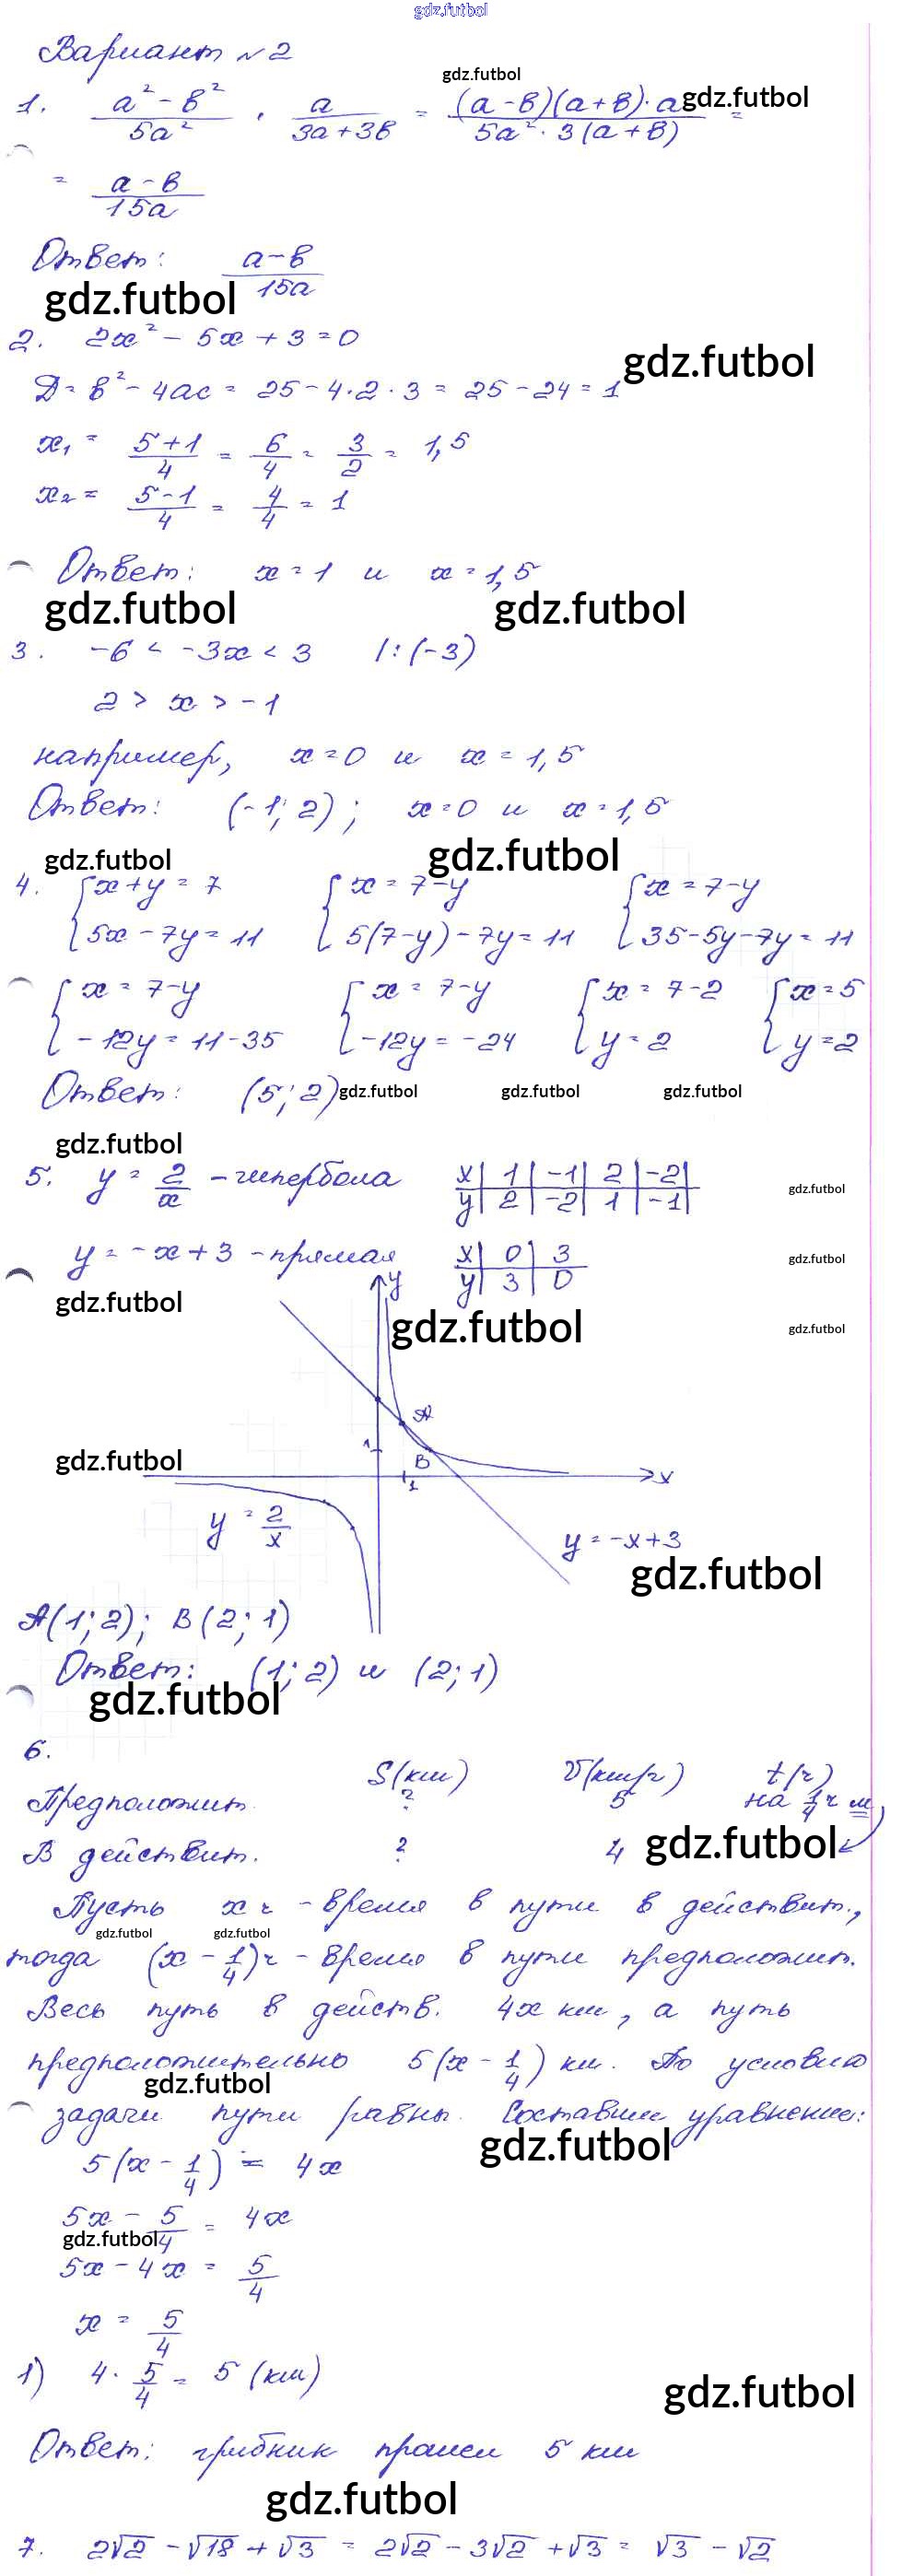 gdz.futbol
Вариант №2
gdz.futbol
1. (a² - b²)/(5a²) · a/(3a+3b) = ((a-b)(a+b)·a)/(5a²·3(a+b)) =
gdz.futbol
= (a-b)/(15a)
Ответ: (a-b)/(15a)
gdz.futbol
2. 2x² - 5x + 3 = 0
gdz.futbol
D = b² - 4ac = 25 - 4·2·3 = 25 - 24 = 1
x₁ = (5+1)/4 = 6/4 = 3/2 = 1,5
x₂ = (5-1)/4 = 4/4 = 1
Ответ: x = 1 и x = 1,5
gdz.futbol gdz.futbol
3. -6 < -3x < 3 |:(-3)
2 > x > -1
например, x = 0 и x = 1,5
Ответ: (-1; 2); x = 0 и x = 1,5
gdz.futbol gdz.futbol
4. {x+y = 7 {x = 7-y {x = 7-y
{5x - 7y = 11 {5(7-y) - 7y = 11 {35-5y-7y = 11
{x = 7-y {x = 7-y {x = 7-2 {x = 5
{-12y = 11-35 {-12y = -24 {y = 2 {y = 2
Ответ: (5; 2)
gdz.futbol gdz.futbol gdz.futbol
gdz.futbol
5. y = 2/x - гипербола x | 1 | -1 | 2 | -2 |
y | 2 | -2 | 1 | -1 |
gdz.futbol
y = -x+3 - прямая x | 0 | 3
y | 3 | 0
gdz.futbol
gdz.futbol
y
gdz.futbol
gdz.futbol
A
1
B
gdz.futbol
x
1
y = 2/x
y = -x+3
gdz.futbol
A(1; 2); B(2; 1)
Ответ: (1; 2) и (2; 1)
gdz.futbol
6.
S(км) V(км/ч) t(ч)
Предположит. ? 5 на 1/4 ч м
В действит. ? 4
gdz.futbol
Пусть x ч - время в пути в действит.,
gdz.futbol gdz.futbol
тогда (x - 1/4) ч - время в пути предположит.
Весь путь в действ. 4x км, а путь
предположительно 5(x - 1/4) км. По условию
gdz.futbol
задачи пути равны. Составим уравнение:
gdz.futbol
5(x - 1/4) = 4x
5x - 5/4 = 4x
gdz.futbol
5x - 4x = 5/4
x = 5/4
1) 4 · 5/4 = 5 (км)
gdz.futbol
Ответ: грибник прошел 5 км
gdz.futbol
7. 2√2 - √18 + √3 = 2√2 - 3√2 + √3 = √3 - √2